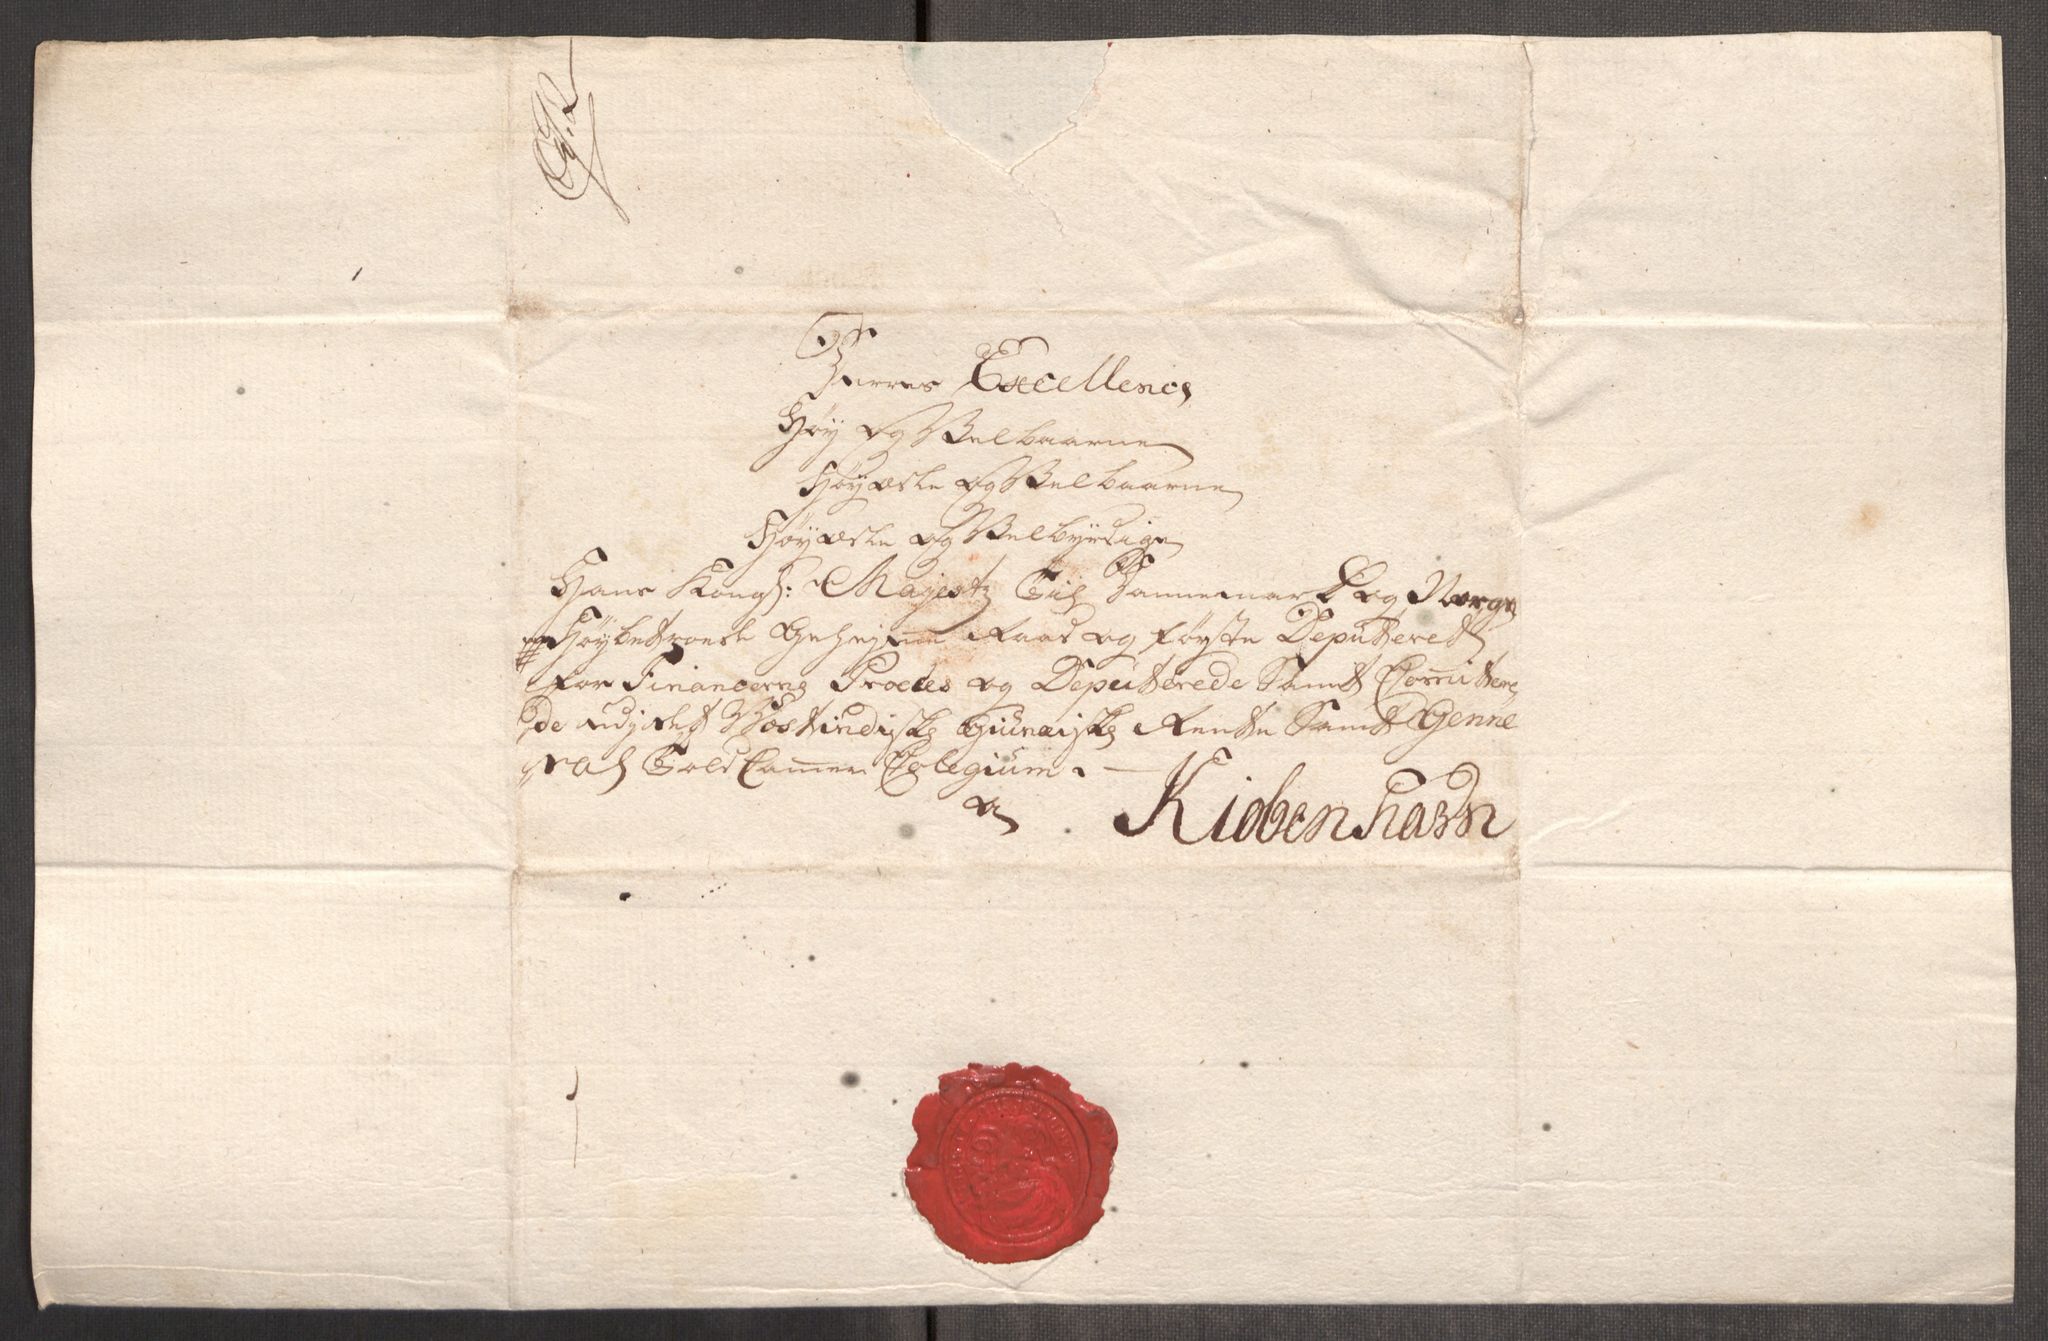 Deres Excellence
Høy og Velbaarne
Høyædle og Velbaarne
Høyædle og Velbyrdige
Hans Kongl: Majestz Til Dannemark og Norge
Høybetroede Geheime Raad og første Deputeret
for Financerne og Deputerede Samt Comittere
de udj det Vestindiske Guineiske Rente Samt Genne
ral Told Cammer Colegium.
a Kiøbenhavn